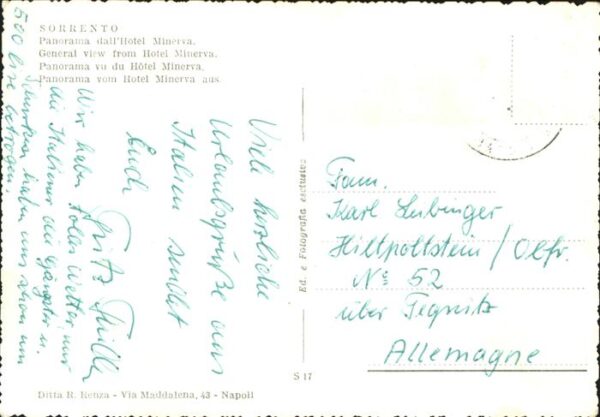 SORRENTO
Panorama dall'Hotel Minerva.
General view from Hotel Minerva.
Panorama vu du Hôtel Minerva.
Panorama vom Hotel Minerva aus.
Viele herzliche
Urlaubsgrüße aus
Italien sendet
Euch
Fritz
Wir haben tolles Wetter, nur
die Italiener sind Gangster u.
haben uns schon um
500 Lire betrogen.
Ed. e Fotografia esclusiva
Fam.
Karl Lubinger
Hiltpoltstein / Obfr.
No 52
über Pegnitz
Allemagne
S 17
Ditta R. Renza - Via Maddalena, 43 - Napoli